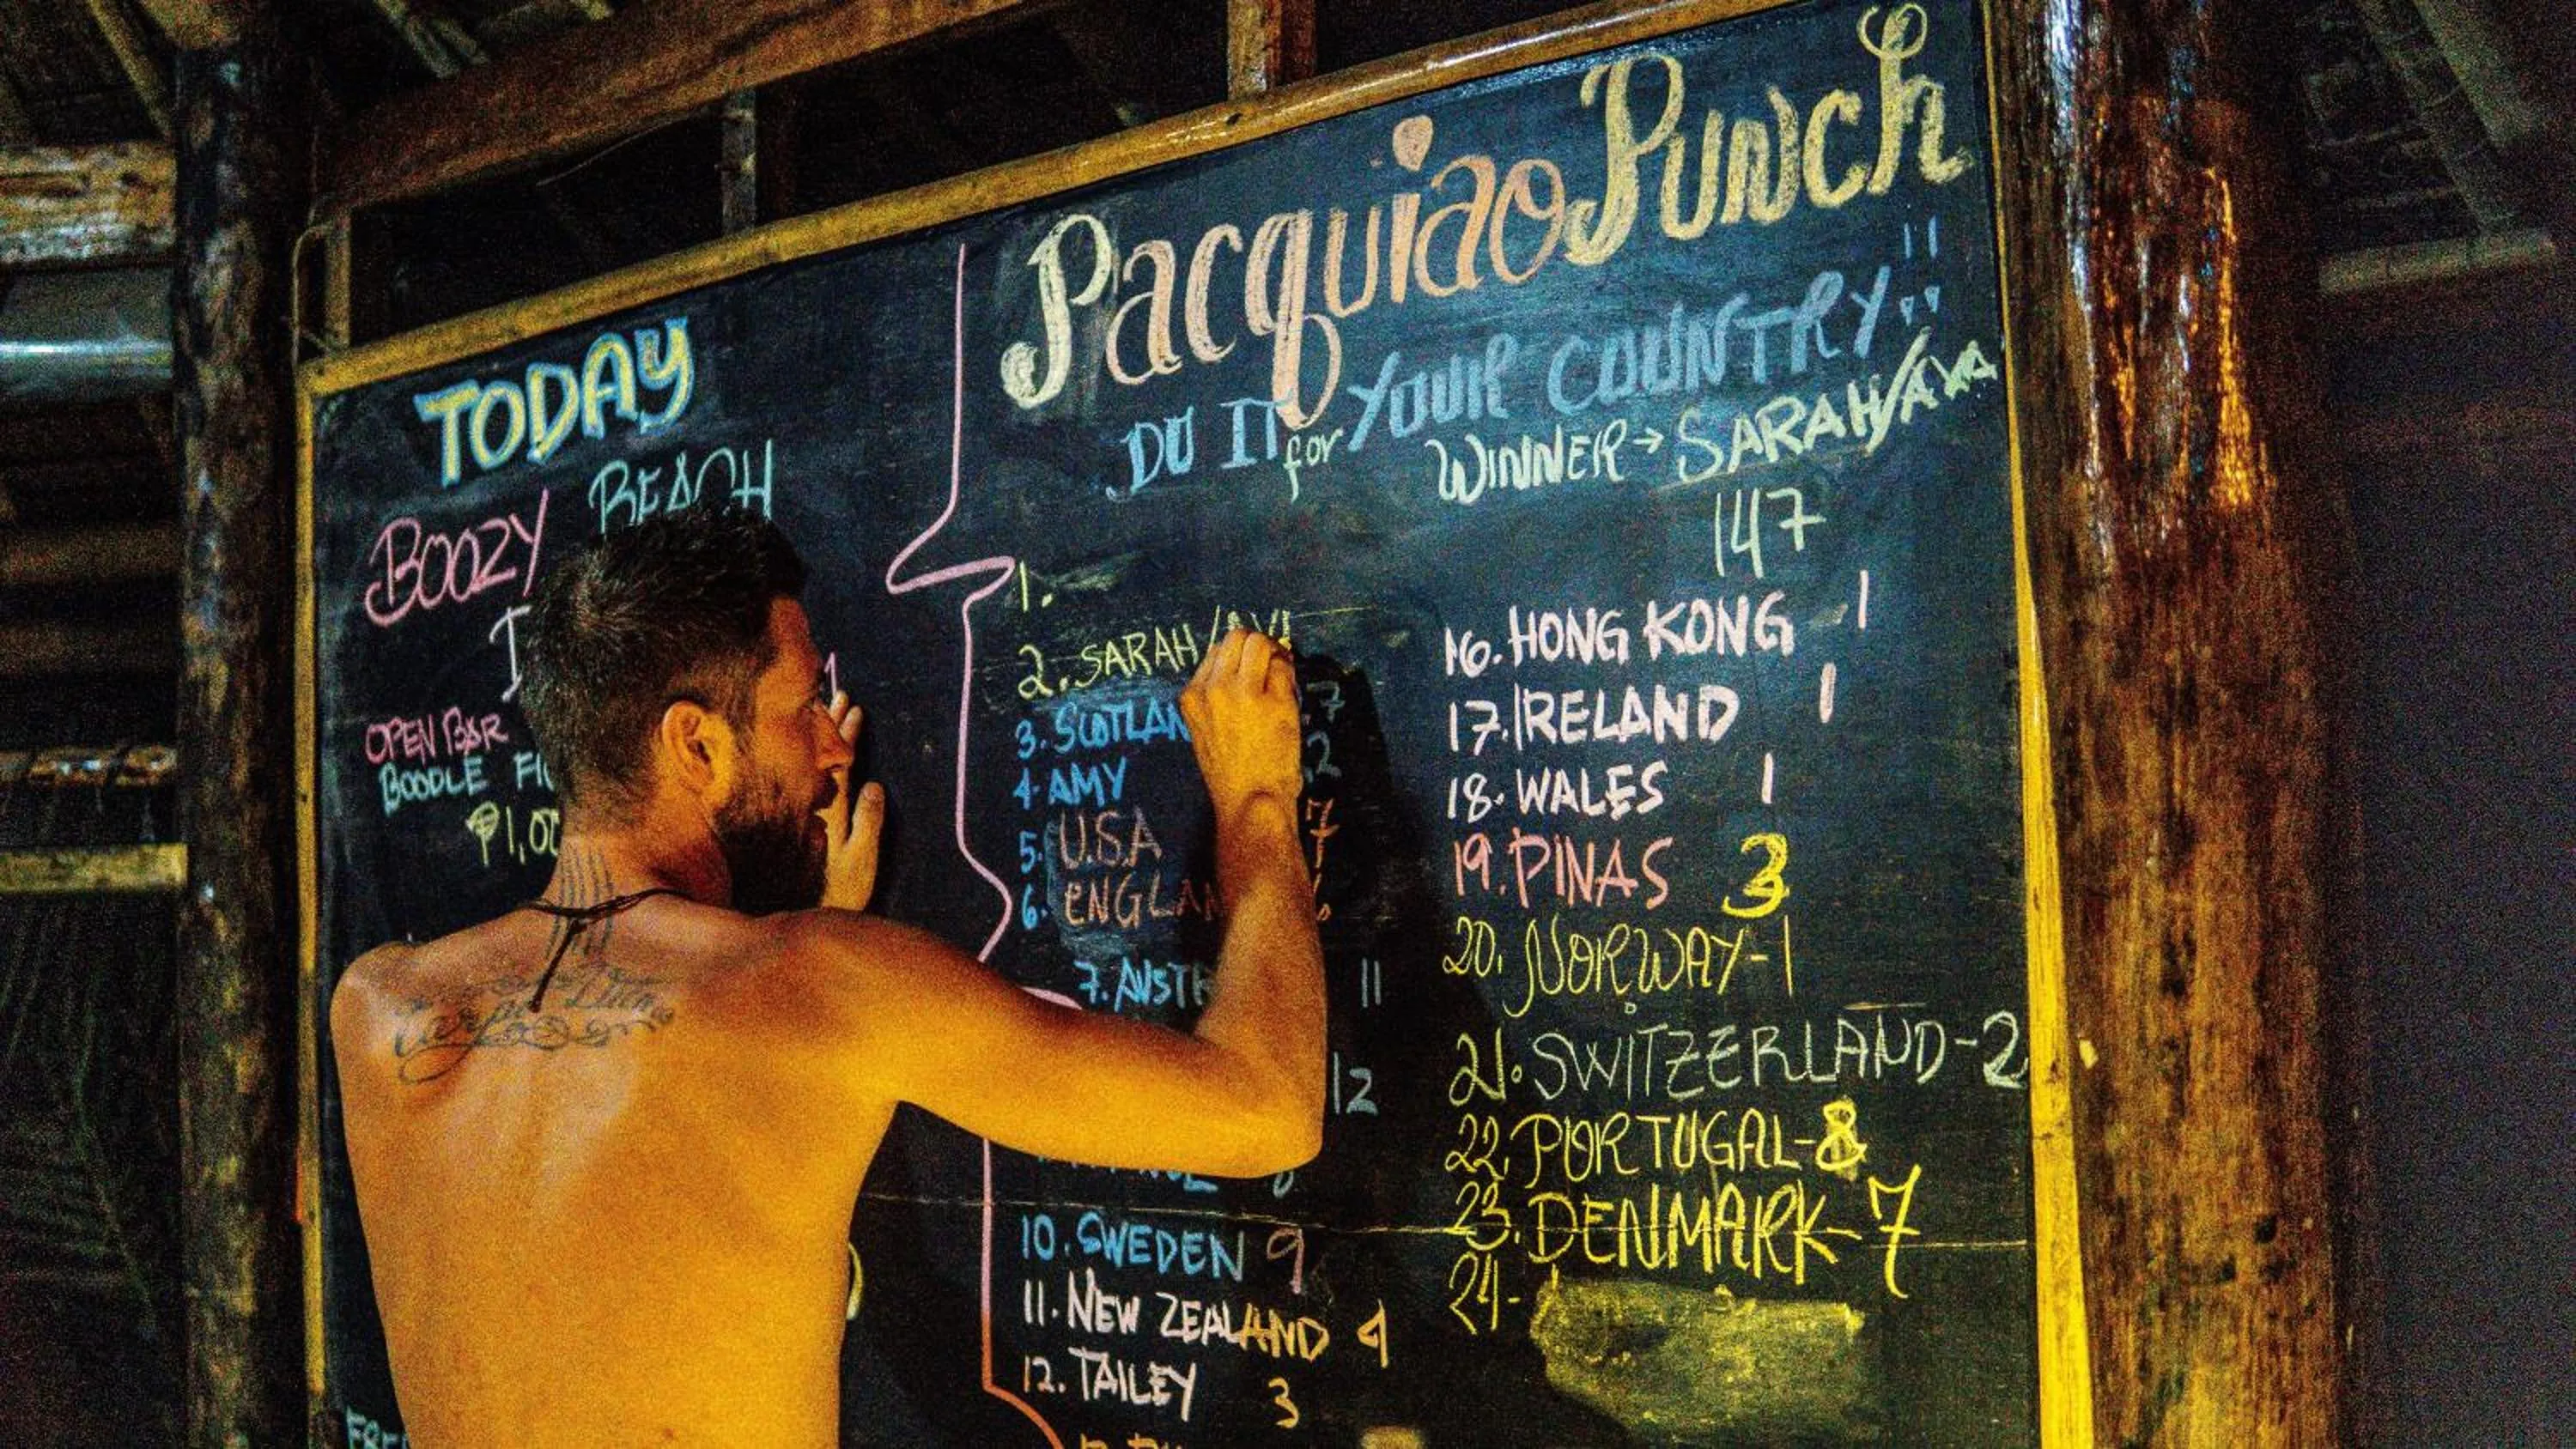 TODAY
BOOZY BEACH
OPEN BAR
BOODLE
₱1,0
Pacquiao Punch
DO IT for YOUR COUNTRY!!
WINNER → SARAH/AVA
147
1.
2. SARAH/
3. SCOTLAN 7
4. AMY 2
5. U.S.A 7
6. ENGLAN 6
7. AUST 11
12
10. SWEDEN 9
11. NEW ZEALAND 4
12. TAILEY 3
16. HONG KONG 1
17. IRELAND 1
18. WALES 1
19. PINAS 3
20. NORWAY-1
21. SWITZERLAND-2
22. PORTUGAL-8
23. DENMARK-7
24-